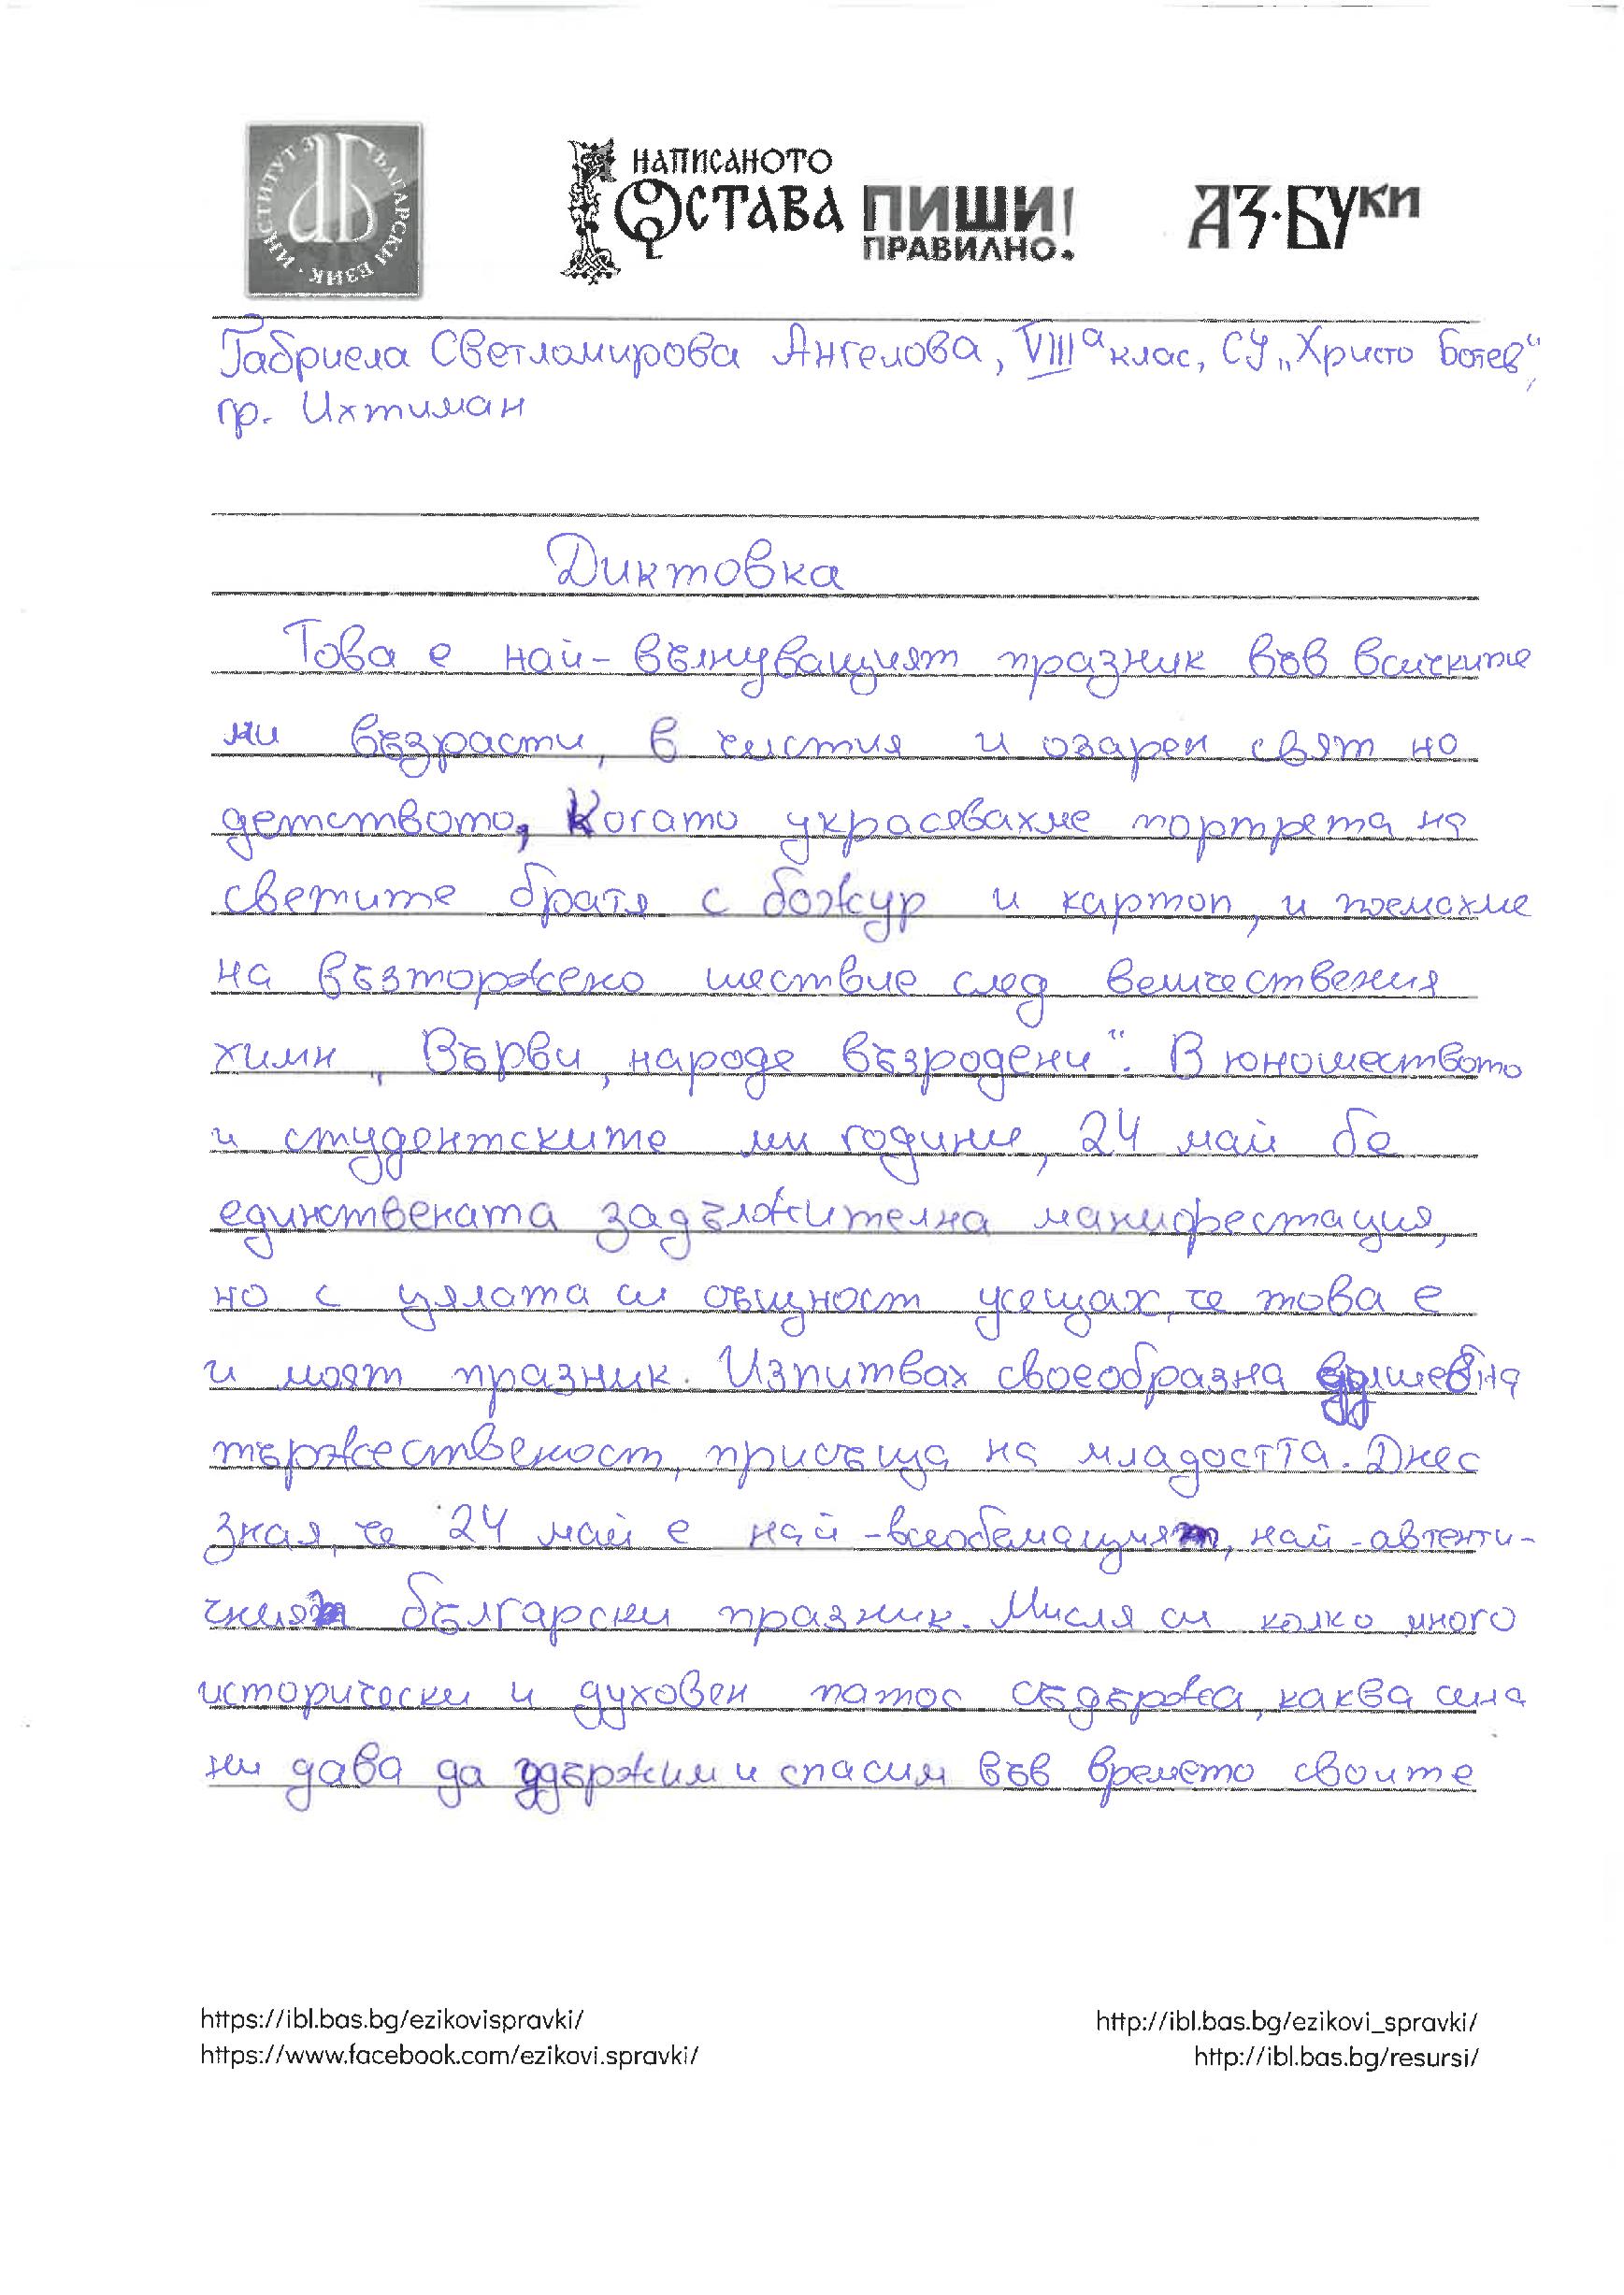 ИНСТИТУТ ЗА БЪЛГАРСКИ ЕЗИК
НАПИСАНОТО
ОСТАВА ПИШИ!
ПРАВИЛНО.
АЗ·БУКИ
Габриела Светломирова Ангелова, VIII а клас, СУ „Христо Ботев“,
гр. Ихтиман
Диктовка
Това е най-вълнуващият празник във всичките
ми възрасти, в чистия и озарен свят на
детството, когато украсявахме портрета на
светите братя с божур и картоп, и поемахме
на възторжено шествие след величествения
химн „Върви, народе възродени“. В юношеството
и студентските ми години, 24 май бе
единствената задължителна манифестация,
но с цялата си същност усещах, че това е
и моят празник. Изпитвах своеобразна душевна
тържественост, присъща на младостта. Днес
зная, че 24 май е най-всеобемащият, най-автенти-
чният български празник. Мисля си колко много
исторически и духовен патос съдържа, каква сила
ни дава да удържим и спасим във времето своите
https://ibl.bas.bg/ezikovispravki/
https://www.facebook.com/ezikovi.spravki/
http://ibl.bas.bg/ezikovi_spravki/
http://ibl.bas.bg/resursi/